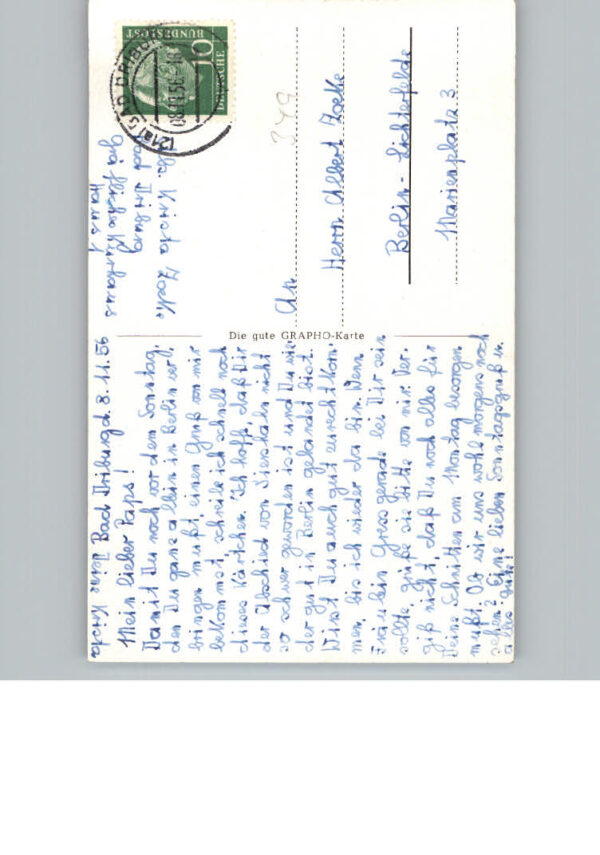 Bad Driburg d. 8.11.56
Mein lieber Paps!
Damit Du noch vor dem Sonntag,
den Du ganz allein in Berlin ver-
bringen mußt, einen Gruß von mir
bekommst, schreibe ich schnell noch
dieses Kärtchen. Ich hoffe, daß Dir
der Abschied von hier nicht
so schwer geworden ist und Du wie-
der gut in Berlin gelandet bist.
Wirst Du auch gut zurecht kom-
men, bis ich wieder da bin. Wenn
Fräulein Gress gerade bei Dir sein
sollte, grüße sie bitte von mir. Ver-
giß nicht, daß Du noch alles für
Deine Schnitten am Montag besorgen
mußt. Ob wir uns wohl morgens noch
sehen? Eine lieben Sonntagsgruß u.
alles gute!
Deine Krista
Die gute GRAPHO-Karte
DEUTSCHE
BUNDESPOST
10
(21a) BAD DRIBURG
08.11.56
Krista
Bad Driburg
Haus 1
349
An
Herrn Albert
Berlin-Lichterfelde
Marienplatz 3